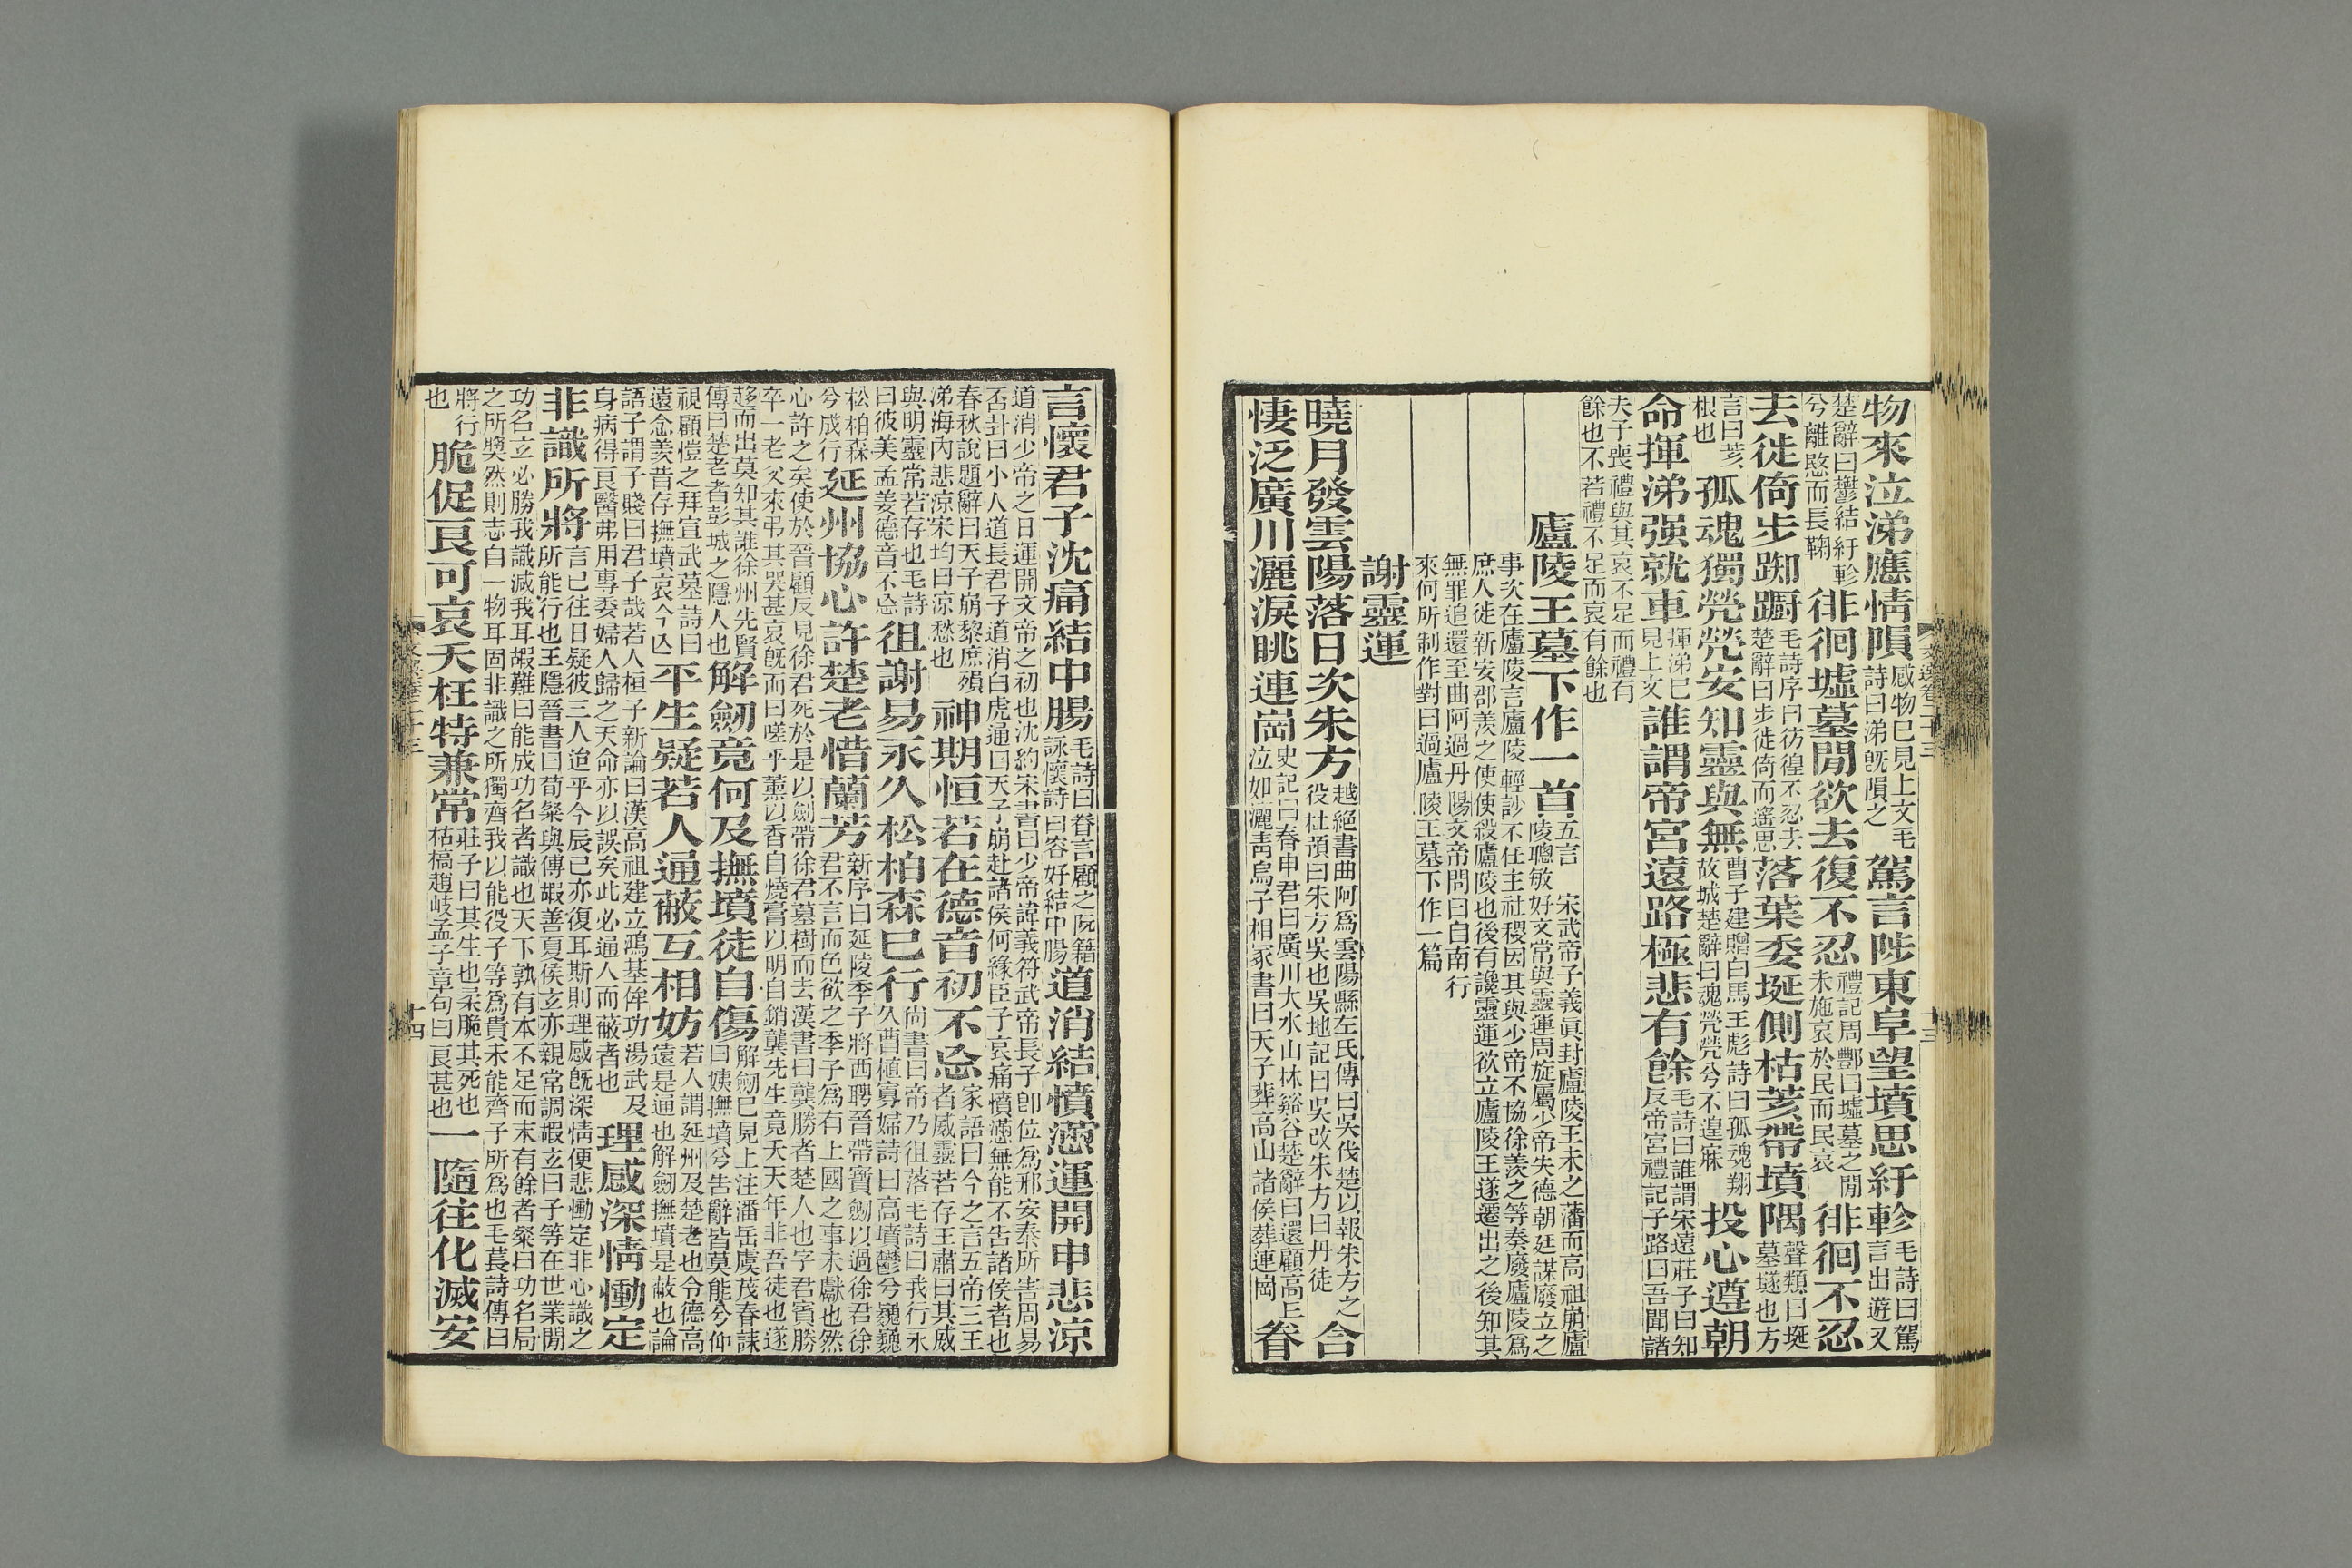 物來泣涕應情隕感物已見上文毛詩曰涕旣隕之駕言陟東阜望墳思紆軫毛詩曰駕言出遊又
楚辭曰鬱結紆軫兮離慜而長鞠徘徊墟墓閒欲去復不忍禮記周酆曰墟墓之閒未施哀於民而民哀徘徊不忍
去徙倚步踟躕毛詩序曰彷徨不忍去楚辭曰步徙倚而遙思落葉委埏側枯荄帶墳隅聲類曰埏墓墢也方
言曰荄根也孤魂獨煢煢安知靈與無曹子建贈白馬王彪詩曰孤魂翔故城楚辭曰魂煢煢兮不遑寐投心遵朝
命揮涕强就車揮涕已見上文誰謂帝宮遠路極悲有餘毛詩曰誰謂宋遠莊子曰知反帝宮禮記子路曰吾聞諸
夫子喪禮與其哀不足而禮有餘也不若禮不足而哀有餘也
廬陵王墓下作一首五言 宋武帝子義眞封廬陵王未之藩而高祖崩廬陵聰敏好文常與靈運周旋屬少帝失德朝廷謀廢立之
事次在廬陵言廬陵輕訬不任主社稷因其與少帝不協徐羨之等奏廢廬陵爲庶人徙新安郡羨之使使殺廬陵也後有讒靈運欲立廬陵王遂遷出之後知其
無罪追還至曲阿過丹陽文帝問曰自南行來何所制作對曰過廬陵王墓下作一篇
謝靈運
曉月發雲陽落日次朱方越絕書曲阿爲雲陽縣左氏傳曰吳伐楚以報朱方之役杜預曰朱方吳也吳地記曰吳改朱方曰丹徒含
悽泛廣川灑淚眺連崗史記曰春申君曰廣川大水山林谿谷楚辭曰還顧高丘泣如灑靑烏子相冢書曰天子葬高山諸侯葬連崗眷
文選卷二十三
十三
言懷君子沈痛結中腸毛詩曰眷言顧之阮籍詠懷詩曰容好結中腸道消結憤懣運開申悲涼
道消少帝之日運開文帝之初也沈約宋書曰少帝諱義符武帝長子卽位爲邢安泰所害周易否卦曰小人道長君子道消白虎通曰天子崩赴諸侯何緣臣子哀痛憤懣無能不告諸侯者也
春秋說題辭曰天子崩黎庶殞涕海內悲涼宋均曰涼愁也神期恒若在德音初不忘家語曰今之言五帝三王者威靈若存王肅曰其威
與明靈常若存也毛詩曰彼美孟姜德音不忘徂謝易永久松柏森已行尙書曰帝乃徂落毛詩曰我行永久曹植寡婦詩曰高墳鬱兮巍巍
松柏森兮成行延州協心許楚老惜蘭芳新序曰延陵季子將西聘晉帶寶劒以過徐君徐君不言而色欲之季子爲有上國之事未獻也然
心許之矣使於晉顧反見徐君死於是以劒帶徐君墓樹而去漢書曰龔勝者楚人也字君賓勝卒一老父來弔其哭甚哀旣而曰嗟乎薰以香自燒膏以明自銷龔先生竟夭天年非吾徒也遂
趍而出莫知其誰徐州先賢傳曰楚老者彭城之隱人也解劒竟何及撫墳徒自傷解劒已見上注潘岳虞茂春誄曰姨撫墳兮告辭皆莫能兮仰
視顧愷之拜宣武墓詩曰遠念羨昔存撫墳哀今亾平生疑若人通蔽互相妨若人謂延州及楚老也令德高遠是通也解劒撫墳是蔽也論
語子謂子賤曰君子哉若人桓子新論曰漢高祖建立鴻基侔功湯武及身病得良醫弗用專委婦人歸之天命亦以誤矣此必通人而蔽者也理感深情慟定
非識所將言已往日疑彼三人迨乎今辰已亦復耳斯則理感旣深情便悲慟定非心識之所能行也王隱晉書曰荀粲與傅嘏善夏侯玄亦親常謂嘏玄曰子等在世業閒
功名立必勝我識滅我耳嘏難曰能成功名者識也天下孰有本不足而末有餘者粲曰功名局之所奬然則志自一物耳固非識之所獨齊我以能役子等爲貴未能齊子所爲也毛萇詩傳曰
將行也脆促良可哀夭枉特兼常莊子曰其生也柔脆其死也枯槁趙岐孟子章句曰良甚也一隨往化滅安
文選卷二十三
十四